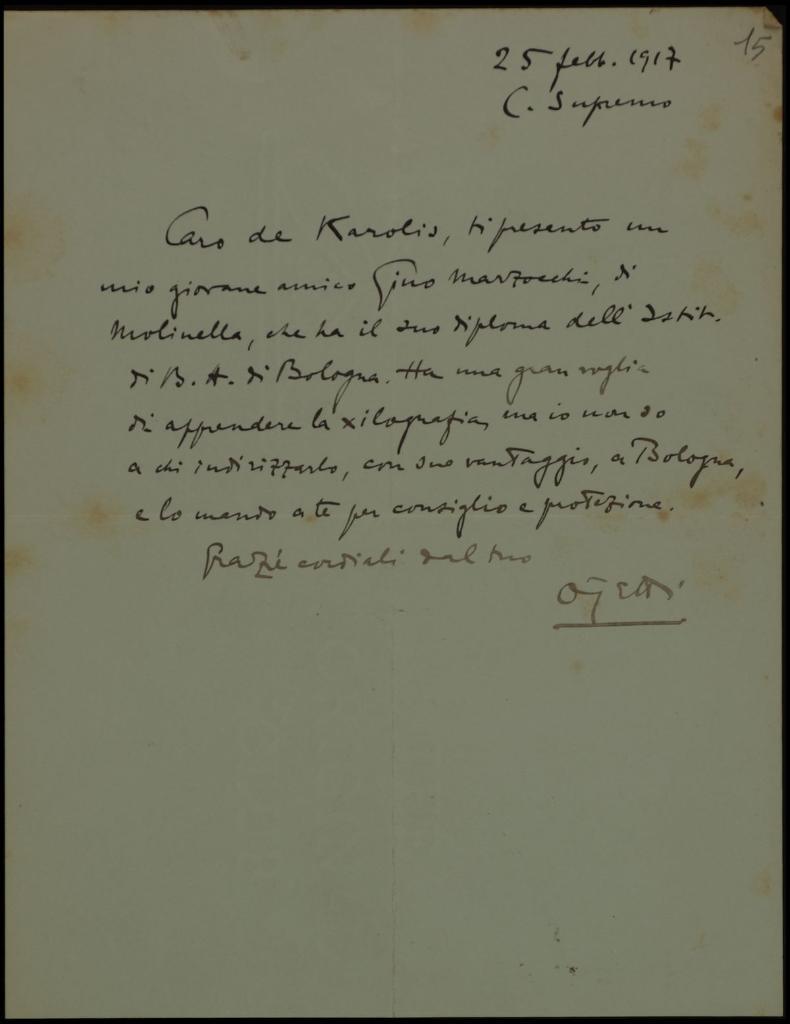 15
25 febb. 1917
C. Supremo
Caro de Karolis, ti presento un
mio giovane amico Gino Marzocchi, di
Molinella, che ha il suo diploma dell' Istit.
di B. A. di Bologna. Ha una gran voglia
di apprendere la xilografia, ma io non so
a chi indirizzarlo, con suo vantaggio, a Bologna,
e lo mando a te per consiglio e protezione.
Grazie cordiali dal tuo
Ojetti